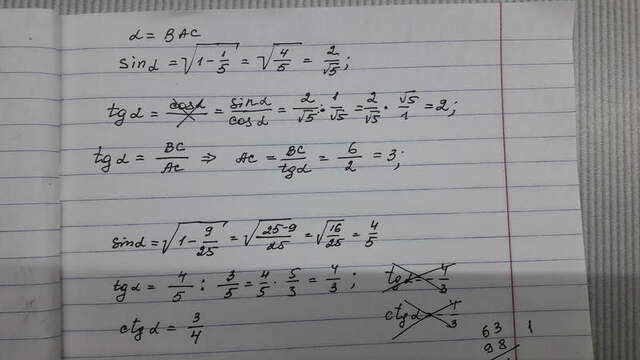 α = BAC
sin α = √(1 - 1/5) = √(4/5) = 2/√5;
tg α = cos α = sin α/cos α = 2/√5 : 1/√5 = 2/√5 · √5/1 = 2;
tg α = BC/AC ⇒ AC = BC/tg α = 6/2 = 3;
sin α = √(1 - 9/25) = √((25-9)/25) = √(16/25) = 4/5
tg α = 4/5 : 3/5 = 4/5 · 5/3 = 4/3; tg α = 4/3
ctg α = 3/4 ctg α = 4/3
63 1
98